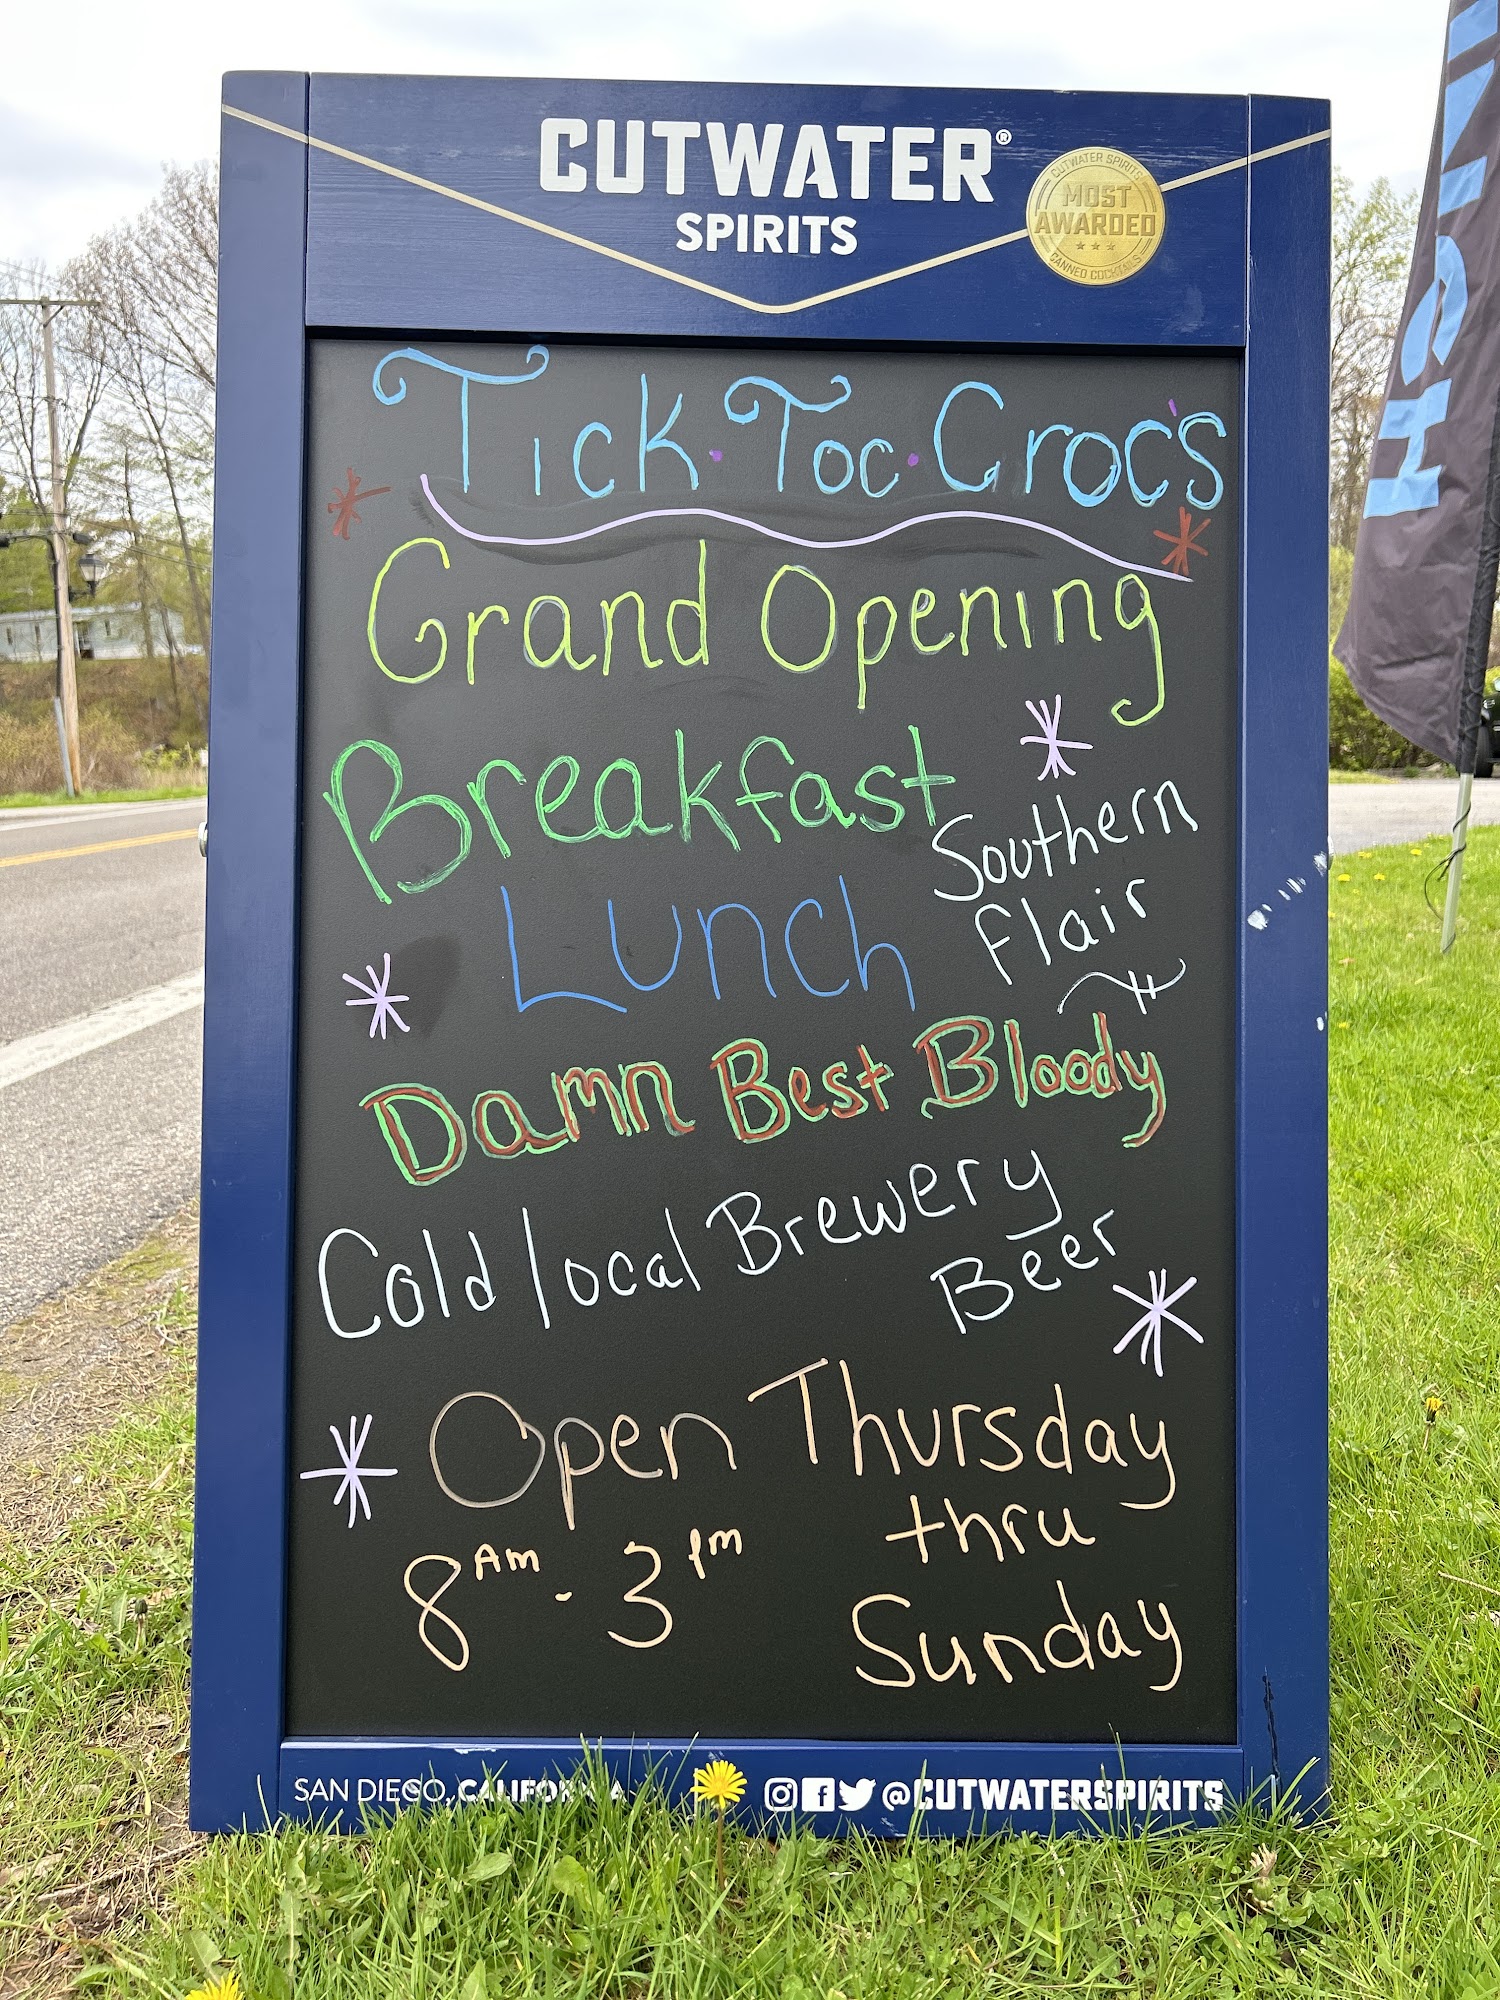 CUTWATER®
SPIRITS
CUTWATER SPIRITS
MOST
AWARDED
CANNED COCKTAILS
Tick·Toc·Croc's
Grand Opening
Breakfast
Southern
Flair
Lunch
Damn Best Bloody
Cold local Brewery
Beer
Open Thursday
thru
8Am - 3pm
Sunday
SAN DIEGO, CALIFORNIA
@CUTWATERSPIRITS